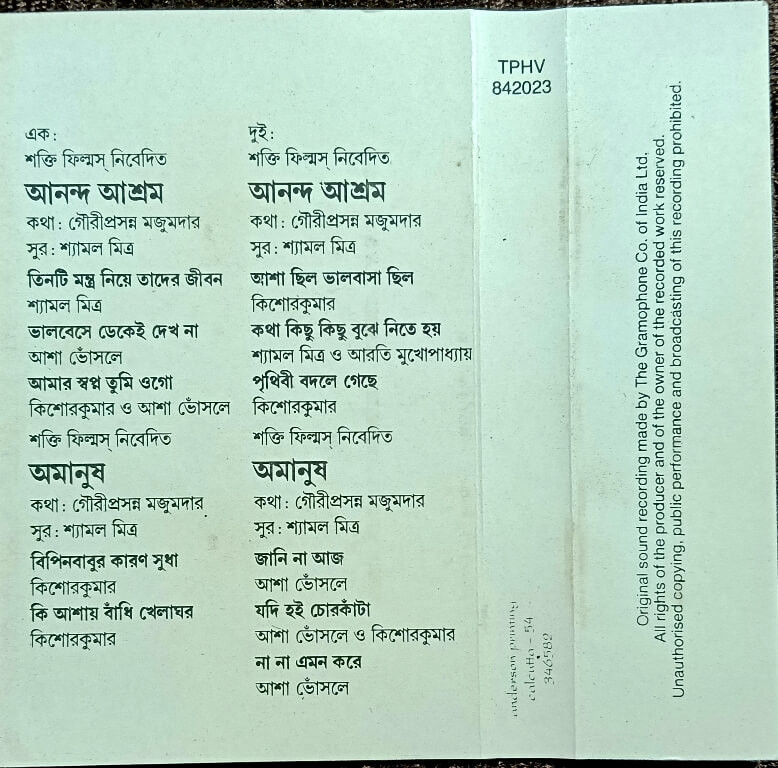 এক:
শক্তি ফিল্মস্ নিবেদিত
আনন্দ আশ্রম
কথা: গৌরীপ্রসন্ন মজুমদার
সুর: শ্যামল মিত্র
তিনটি মন্ত্র নিয়ে তাদের জীবন
শ্যামল মিত্র
ভালবেসে ডেকেই দেখ না
আশা ভোঁসলে
আমার স্বপ্ন তুমি ওগো
কিশোরকুমার ও আশা ভোঁসলে
শক্তি ফিল্মস্ নিবেদিত
অমানুষ
কথা: গৌরীপ্রসন্ন মজুমদার
সুর: শ্যামল মিত্র
বিপিনবাবুর কারণ সুধা
কিশোরকুমার
কি আশায় বাঁধি খেলাঘর
কিশোরকুমার
দুই:
শক্তি ফিল্মস্ নিবেদিত
আনন্দ আশ্রম
কথা: গৌরীপ্রসন্ন মজুমদার
সুর: শ্যামল মিত্র
আশা ছিল ভালবাসা ছিল
কিশোরকুমার
কথা কিছু কিছু বুঝে নিতে হয়
শ্যামল মিত্র ও আরতি মুখোপাধ্যায়
পৃথিবী বদলে গেছে
কিশোরকুমার
শক্তি ফিল্মস্ নিবেদিত
অমানুষ
কথা: গৌরীপ্রসন্ন মজুমদার
সুর: শ্যামল মিত্র
জানি না আজ
আশা ভোঁসলে
যদি হই চোরকাঁটা
আশা ভোঁসলে ও কিশোরকুমার
না না এমন করে
আশা ভোঁসলে
TPHV
842023
anderson printing
calcutta - 54
346582
Original sound recording made by The Gramophone Co. of India Ltd.
All rights of the producer and of the owner of the recorded work reserved.
Unauthorised copying, public performance and broadcasting of this recording prohibited.